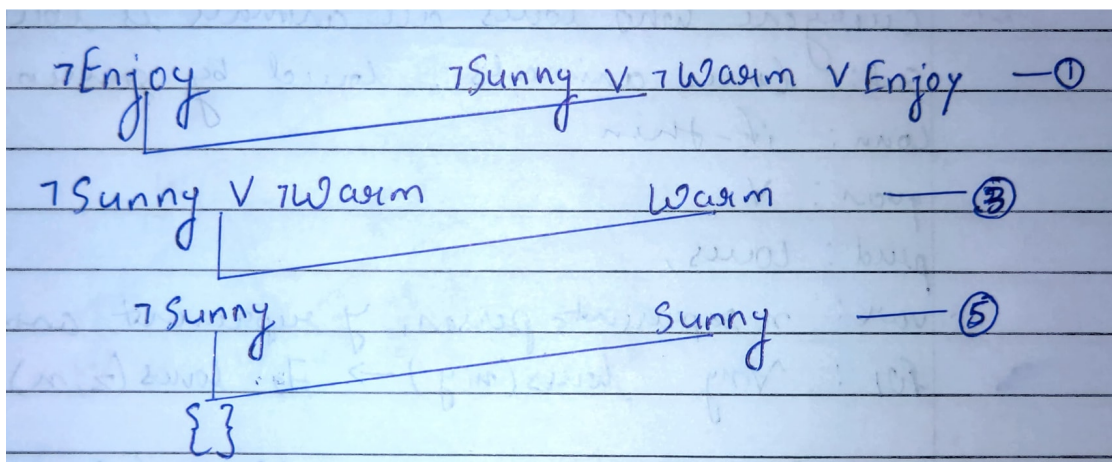 ¬Enjoy ¬Sunny ∨ ¬Warm ∨ Enjoy — ①
¬Sunny ∨ ¬Warm Warm — ③
¬Sunny Sunny — ⑤
{ }